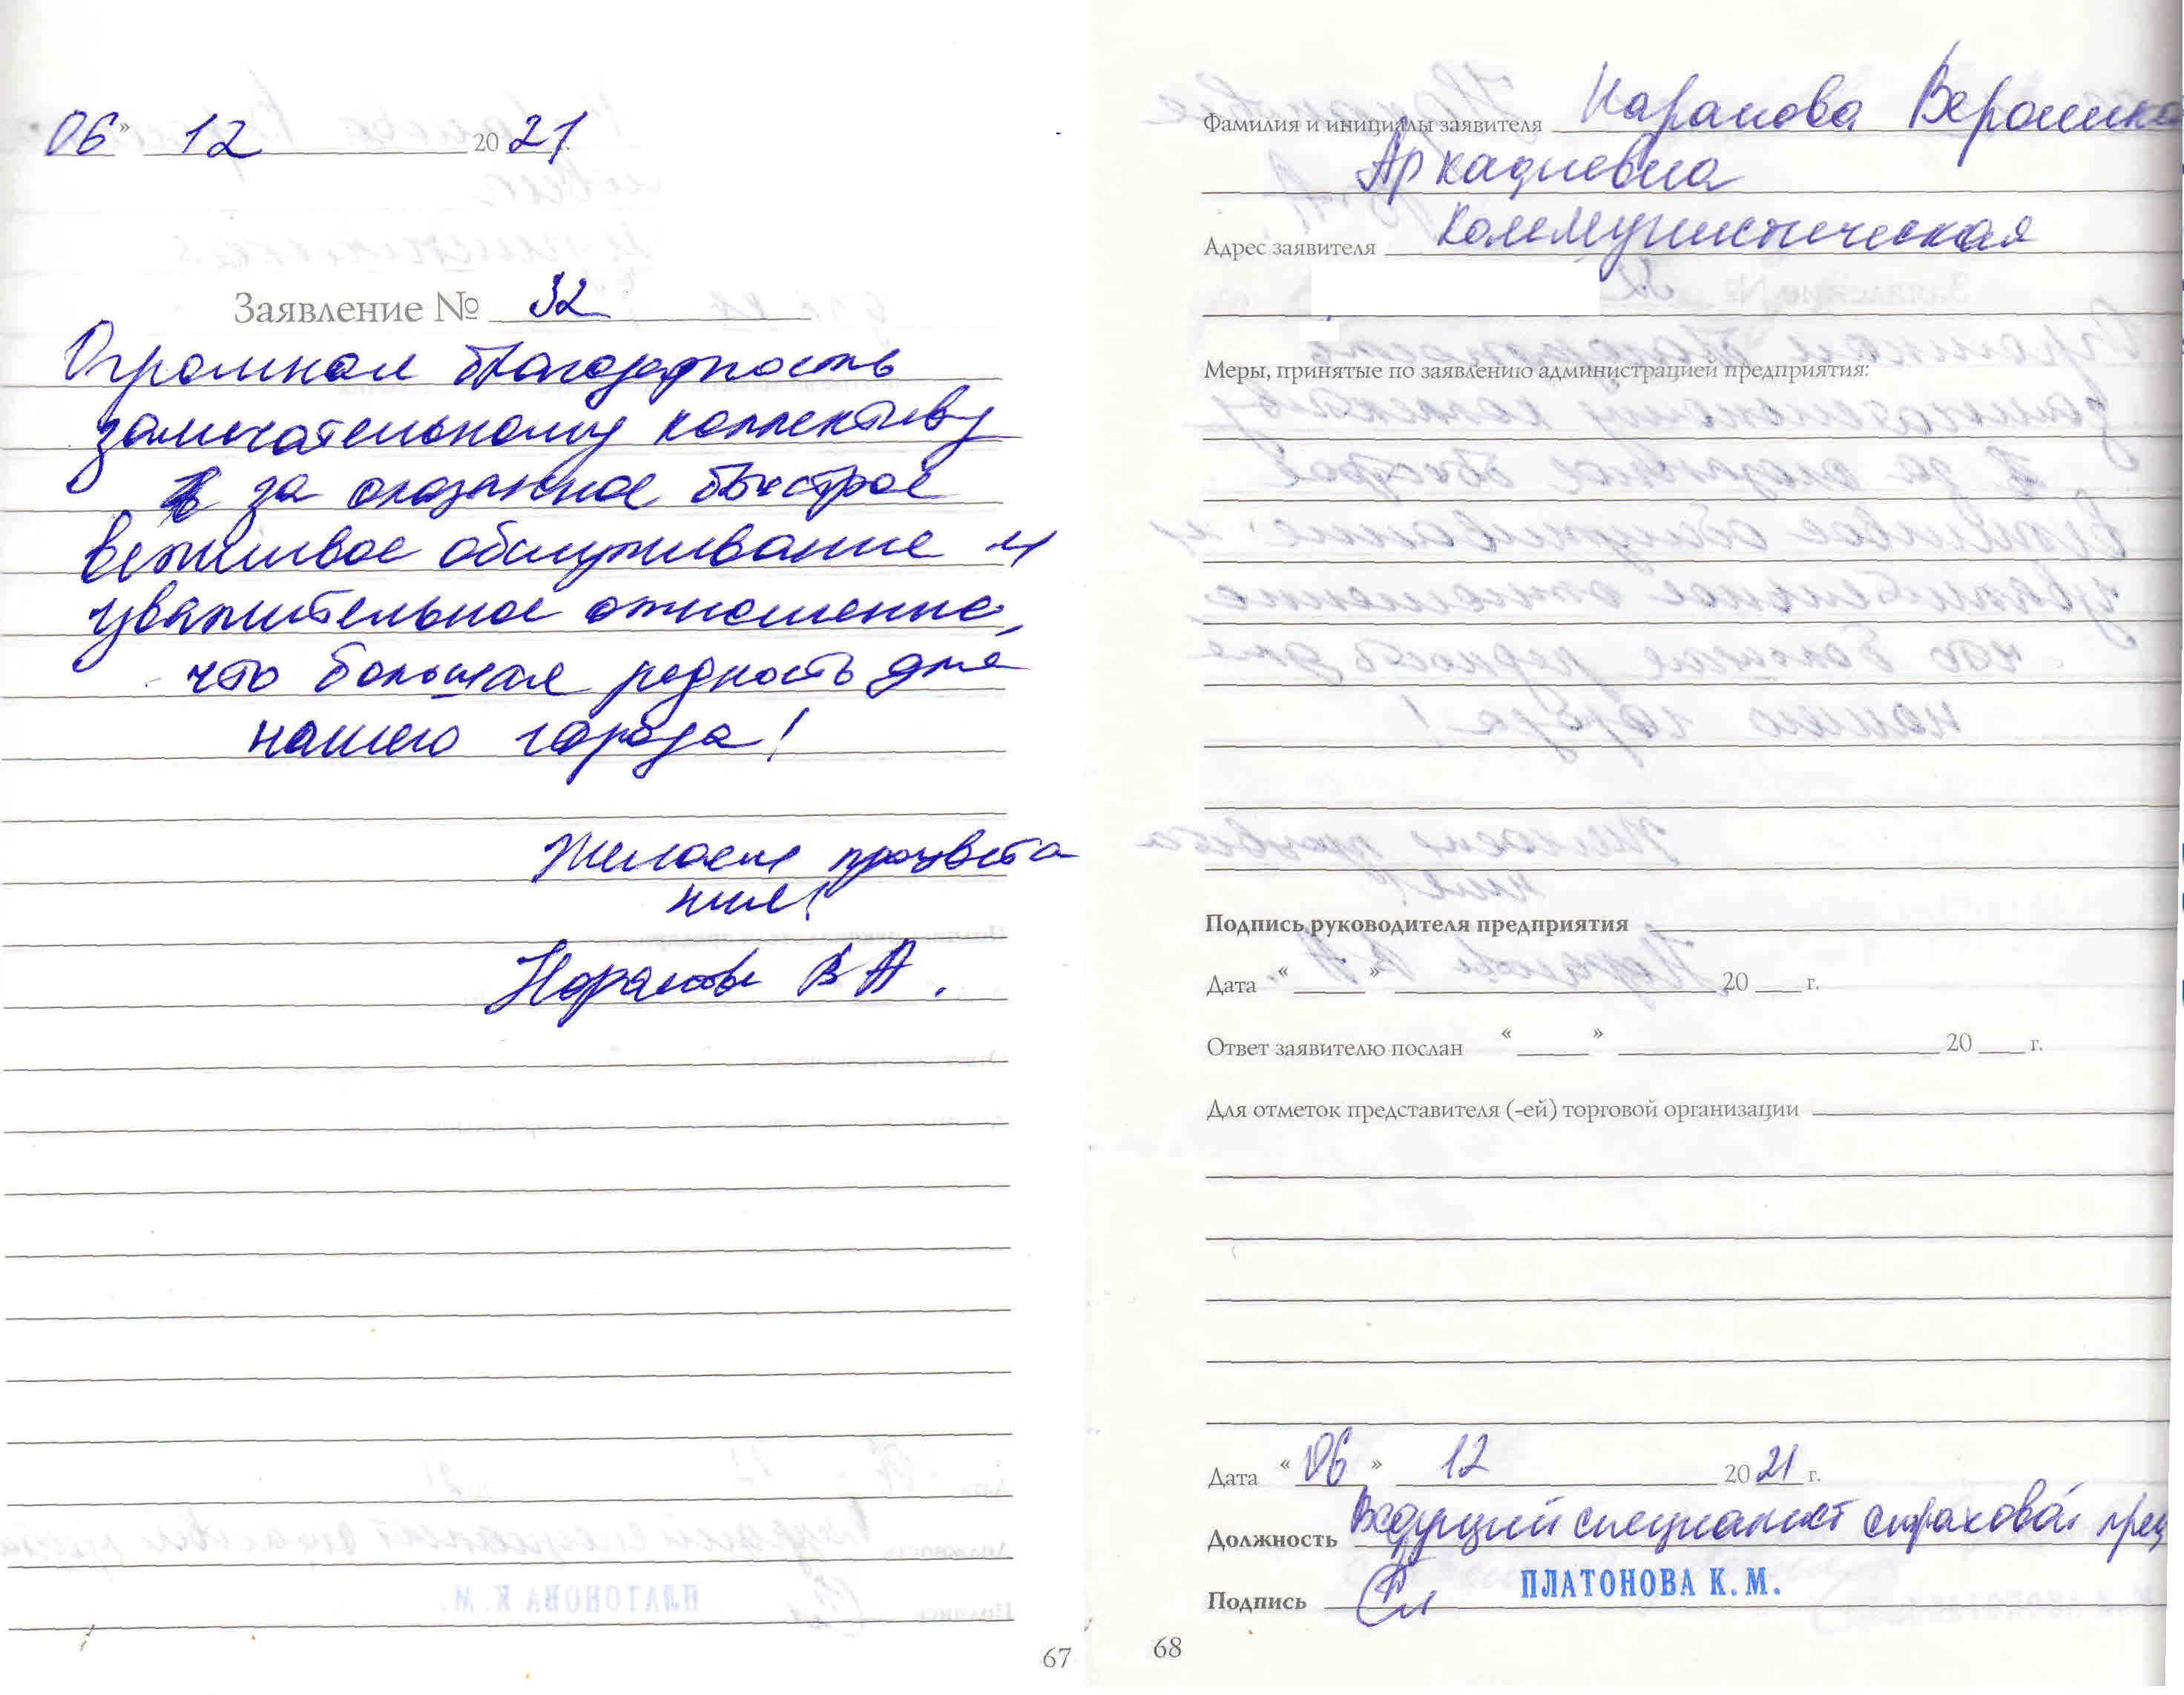 06 » 12 20 21
Заявление № 32
Огромная благодарность
замечательному коллективу
за оказанное быстрое
вежливое обслуживание и
уважительное отношение,
что большая редкость для
нашего города!
Желаем процвета
ния!
В А.
67
Фамилия и инициалы заявителя Вероника
Аркадиевна
Адрес заявителя Коммунистическая
Меры, принятые по заявлению администрацией предприятия:
Подпись руководителя предприятия
Дата « » 20 г.
Ответ заявителю послан « » 20 г.
Для отметок представителя (-ей) торговой организации
Дата « 06 » 12 20 21 г.
Должность Ведущий специалист страховой
Подпись ПЛАТОНОВА К. М.
68